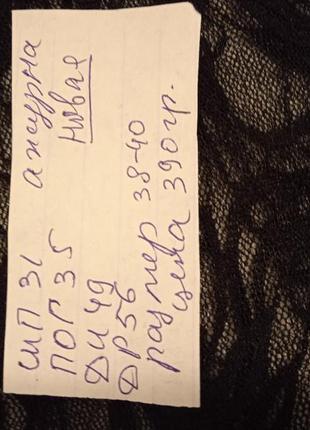 ШП 31 ажурна
ПОГ 35 новая
ДИ 49
ДР 56
размер 38-40
цена 390 гр.